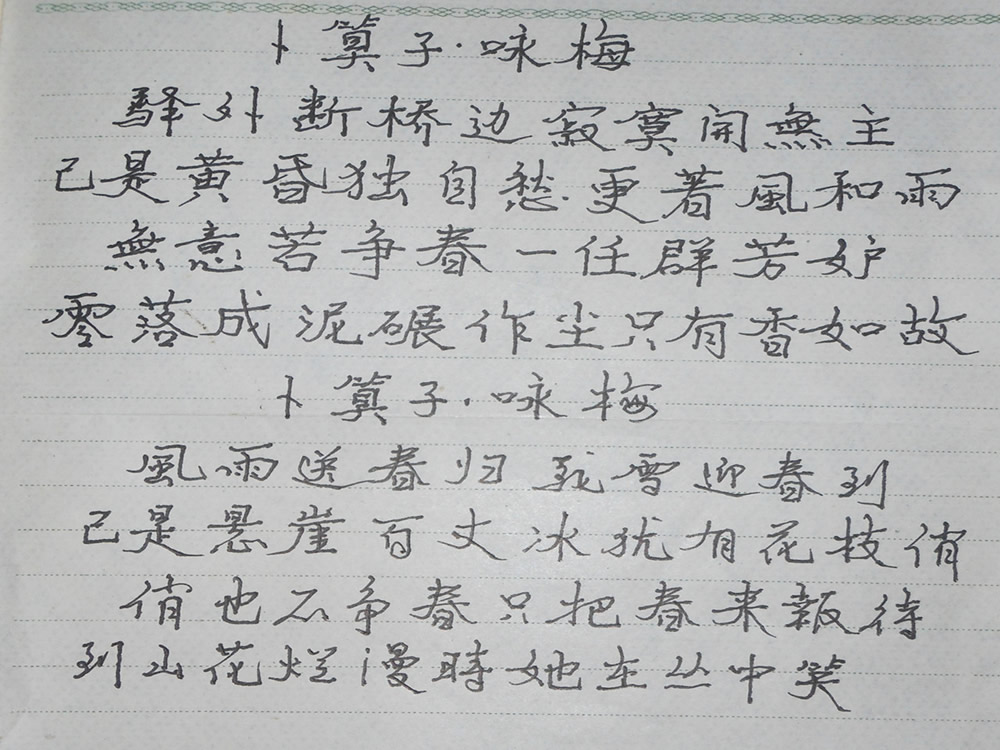 卜算子·咏梅
驿外断桥边寂寞開無主
已是黄昏独自愁更着風和雨
無意苦争春一任群芳妒
零落成泥碾作尘只有香如故
卜算子·咏梅
風雨送春归飛雪迎春到
已是悬崖百丈冰犹有花枝俏
俏也不争春只把春来報待
到山花烂漫時她在丛中笑